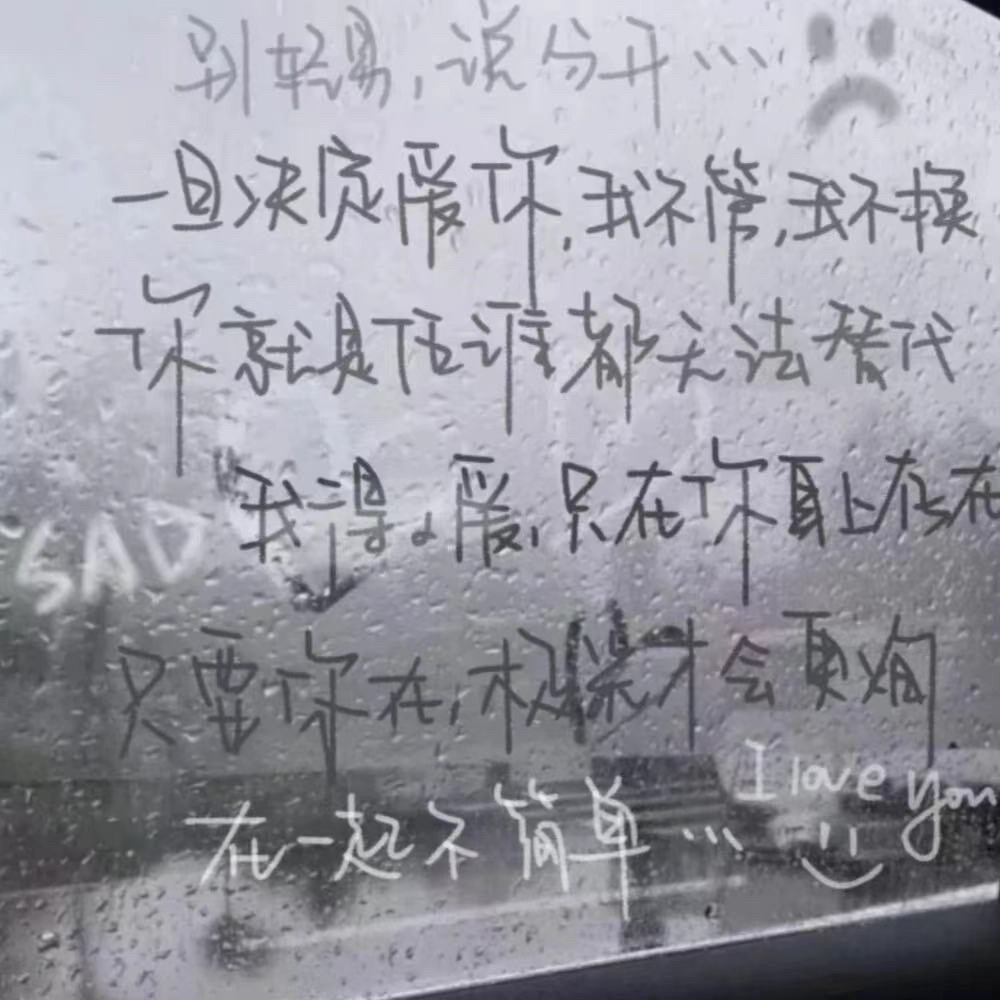 别轻易,说分开...
一旦决定爱你,我不管,我不换
你就是任谁都无法替代
我得爱,只在你身上存在
SAD
只要你在,极深才会更
I love you
在一起不简单...